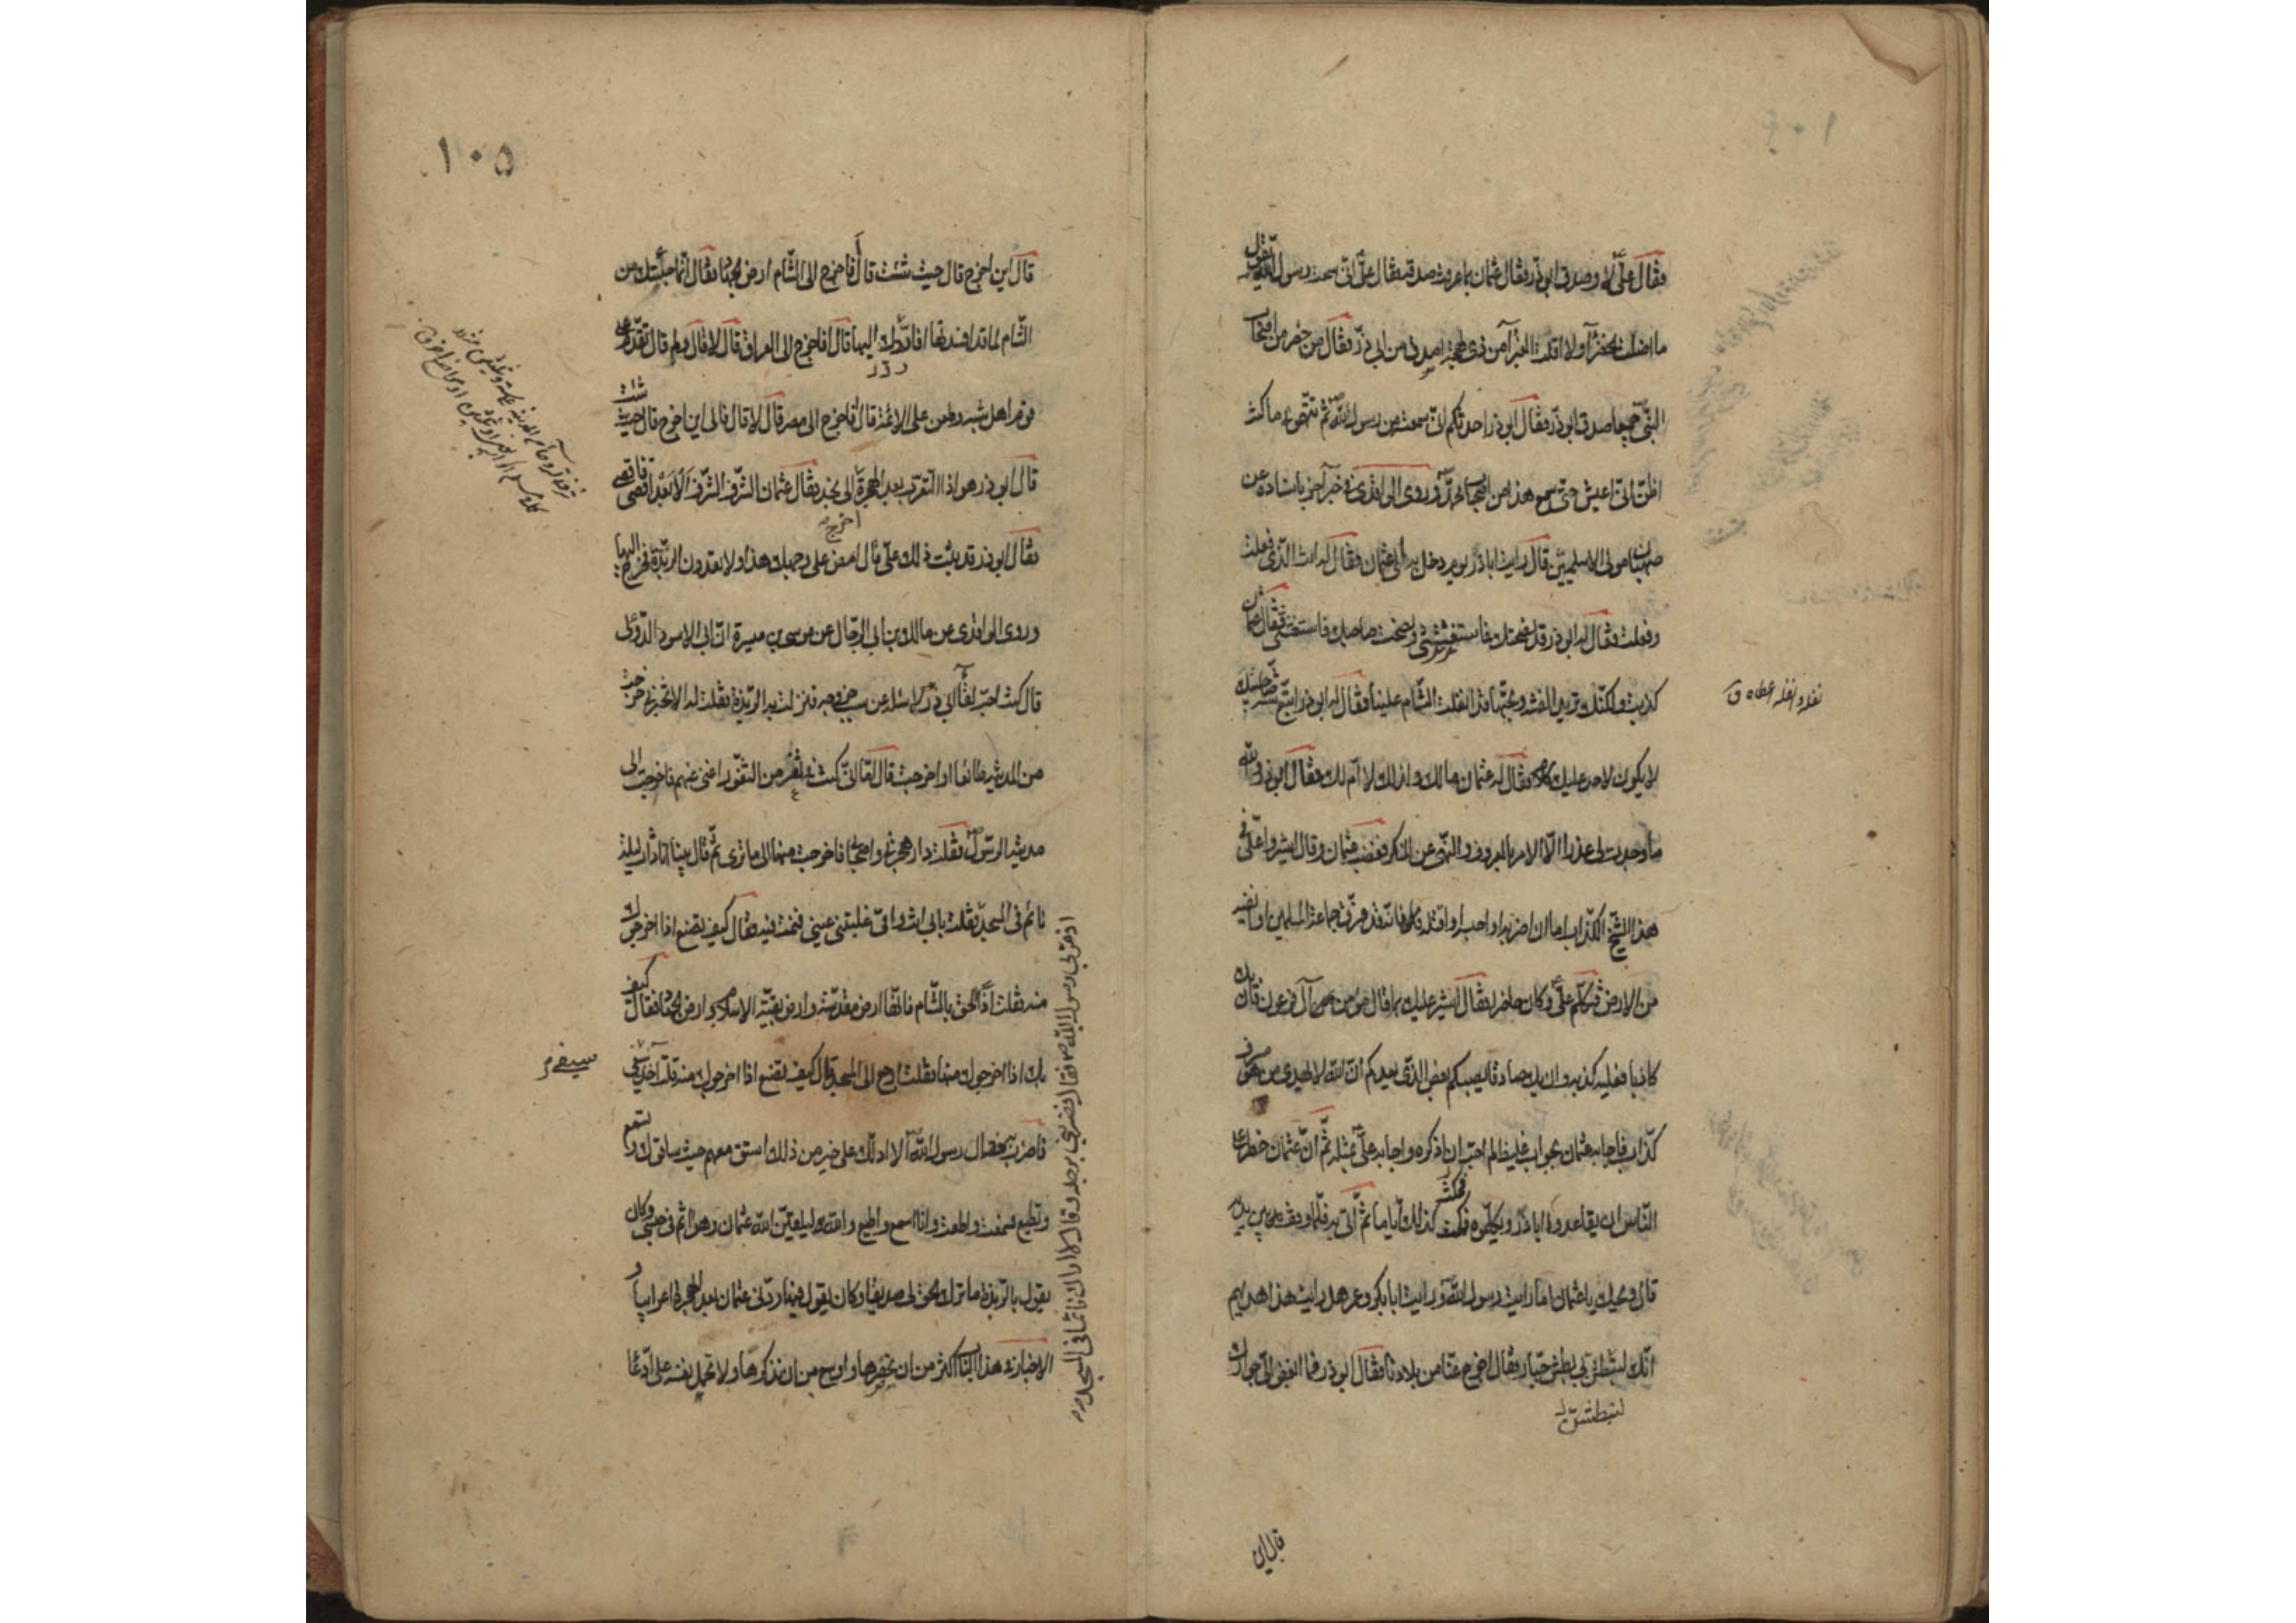 فقال علىّ لا وصدق ابو ذر فقال عثمان بما عرفت صدقه فقال علىّ انى سمعت رسول الله يقول
ما اظلت الخضرآء ولا اقلت الغبرآء من ذى لهجة اصدق من ابى ذرّ فقال من حضر من اصحاب
النبىّ جميعا صدق ابو ذرّ فقال ابو ذر احدثكم انى سمعت من رسول الله ثم تتهمونى ما كنت
اظنّ انى اعيش حتى اسمع هذا من اصحاب محمد وروى الواقدى فى خبر آخر باسناده عن
صهبان مولى الاسلميين قال رايت ابا ذر يوم دخل به على عثمان فقال له انت الذى فعلت
وفعلت فقال له ابو ذر قد نصحتك فاستغششتنى ونصحت صاحبك فاستغشنى فقال عثمان
كذبت ولكنك تريد الفتنه وتحبّها قد انغلت الشام علينا فقال له ابو ذر اتبع سنة صاحبيك
لا يكون لاحد عليك كلام فقال له عثمان مالك وذلك لا امّ لك فقال ابو ذر والله
ما وجدت لى عذرا الّا الامر بالمعروف والنهى عن المنكر فغضب عثمان وقال اشيروا علىّ فى
هذا الشيخ الكذاب اما ان اضربه او احبسه او اقتله فانه قد فرّق جماعة المسلمين او انفيه
من الارض فتكلم علىّ وكان حاضرا فقال اشير عليك بما قال مؤمن آل فرعون فان يك
كاذبا فعليه كذبه وان يك صادقا يصبكم بعض الذى يعدكم انّ الله لا يهدى من هو مسرف
كذاب فاجابه عثمان بجواب غليظ لم احبّ ان اذكره واجابه علىّ بمثله ثمّ انّ عثمان حظر على
النّاس ان يقاعدوا ابا ذر ويكلموه فمكث كذلك ايّاما ثمّ اتى به فلمّا وقف بين يديه
قال ويحك يا عثمان اما رايت رسول الله ورايت ابا بكر وعمر هل رايت هذا هديهم
انك لتبطش بى بطش جبار فقال اخرج عنّا من بلادنا فقال ابو ذر فما ابغض الىّ جوارك
لتبطش
قال اين
١٠٥
قال اين اخرج قال حيث شئت قال أفاخرج الى الشام ارض الجهاد فقال انّما جلبتك من
الشام لما قد افسدتها افاردّك اليها قال افاخرج الى العراق قال لا قال ولم قال تقدم على
قوم اهل شبه وطعن على الائمة قال افاخرج الى مصر قال لا قال فالى اين اخرج قال حيث شئت
قال ابو ذر هو اذا التعرّب بعد الهجرة الى نجد فقال عثمان الشرف الشرف الابعد اقصى فاقصى
فقال ابو ذر قد ابيت ذلك علىّ قال امض على وجهك هذا ولا تعدون الربذة فخرج اليها
وروى الواقدى عن مالك بن ابى الرجال عن موسى بن ميسرة انّ ابا الاسود الدؤلى
قال كنت احبّ لقآء ابى ذر لاسئله عن سبب خروجه فنزلت به الربذة فقلت له الا تخبرنى خرجت
من المدينه طائعا او اخرجت قال كنت فى ثغر من الثغور اغنى عنهم فاخرجت الى
مدينة الرسول فقلت دار هجرتى واصحابى فاخرجت منها الى ما ترى ثم قال بينا انا ذات ليلة
نائم فى المسجد فقلت بابى انت وامّى غلبتنى عينى فنمت فيه فقال كيف تصنع اذا اخرجوك
منه فقلت اذًا الحق بالشام فانها ارض مقدسة وارض بقية الاسلام وارض الجهاد فقال كيف
بك اذا اخرجوك منها فقلت ارجع الى المسجد قال كيف تصنع اذا اخرجوك منه قلت آخذ سيفى
فاضرب به فقال رسول الله الا ادلك على خير من ذلك استق معهم حيث ساقوك وتسمع
وتطيع فسمعت واطعت وانا اسمع واطيع والله ليلقين الله عثمان وهو آثم فى جنبى وكان
يقول بالربذة ما ترك الحق لى صديقا وكان يقول فيها ردّنى عثمان بعد الهجرة اعرابيا
الاخبار فى هذا الباب اكثر من ان نحصرها واوسع من ان نذكرها ولا تحمل نفسه على ادّعا
اذ مرّ بى رسول الله فضربنى برجله وقال لا اراك نائما فى المسجد
سيفى
اخرج